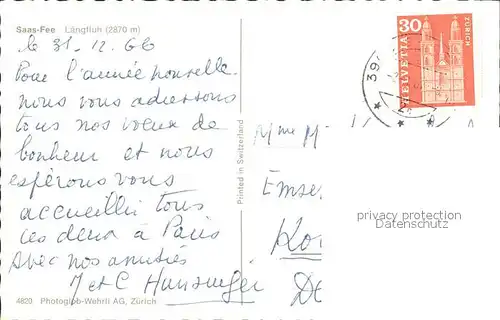 Saas-Fee Längfluh (2870 m)
le 31.12.66
Pour l'année nouvelle
nous vous adressons
tous nos voeux de
bonheur et nous
espérons vous
accueillir tous
les deux à Paris
Avec nos amitiés
J et C
4820 Photoglob-Wehrli AG, Zürich
Printed in Switzerland
HELVETIA
30
ZÜRICH
39
Mme
Emse
Ko
privacy protection
Datenschutz
DE